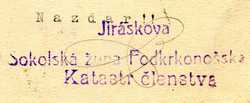 Nazdar!!
Jiráskova
Sokolská župa Podkrkonošská
Katastr členstva